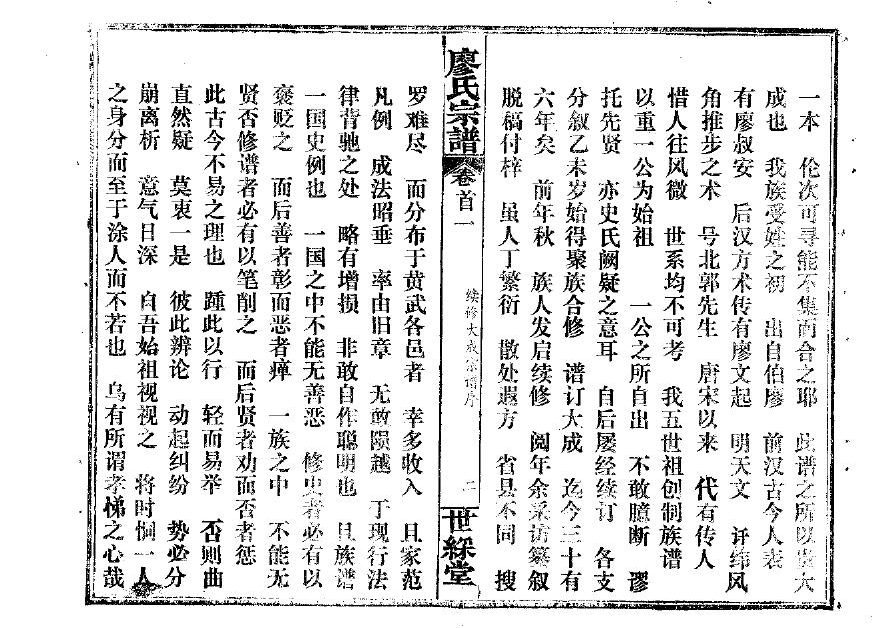 一本　伦次可寻能不集而合之耶　此谱之所以贵大
成也　我族受姓之初　出自伯廖　前汉古今人表
有廖叔安　后汉方术传有廖文起　明天文　评纬风
角推步之术　号北郭先生　唐宋以来　代有传人
惜人往风微　世系均不可考　我五世祖创制族谱
以重一公为始祖　一公之所自出　不敢臆断　谬
托先贤　亦史氏阙疑之意耳　自后屡经续订　各支
分叙乙未岁始得聚族合修　谱订大成　迄今三十有
六年矣　前年秋　族人发启续修　阅年余采访纂叙
脱稿付梓　虽人丁繁衍　散处遐方　省县不同　搜
廖氏宗譜 卷首一 续修大成宗谱序 二 世綵堂
罗难尽　而分布于黄武各邑者　幸多收入　且家范
凡例　成法昭垂　率由旧章　无敢陨越　于现行法
律背驰之处　略有增损　非敢自作聪明也　且族谱
一国史例也　一国之中不能无善恶　修史者必有以
褒贬之　而后善者彰而恶者瘅　一族之中　不能无
贤否修谱者必有以笔削之　而后贤者劝而否者惩
此古今不易之理也　踵此以行　轻而易举　否则曲
直然疑　莫衷一是　彼此辨论　动起纠纷　势必分
崩离析　意气日深　自吾始祖视之　将时恫一人
之身分而至于涂人而不若也　乌有所谓孝悌之心哉